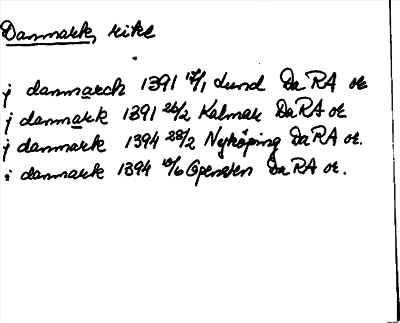 Danmark, rike
j danmarch 1391 17/1 Lund DaRA or.
j danmark 1391 26/2 Kalmar DaRA or.
j danmark 1394 28/2 Nyköping DaRA or.
i danmark 1394 /6 DaRA or.